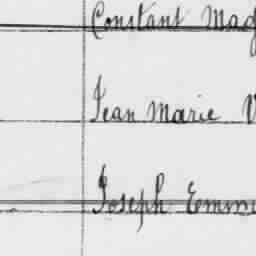 Constant Mag
Jean Marie V
Joseph Emm